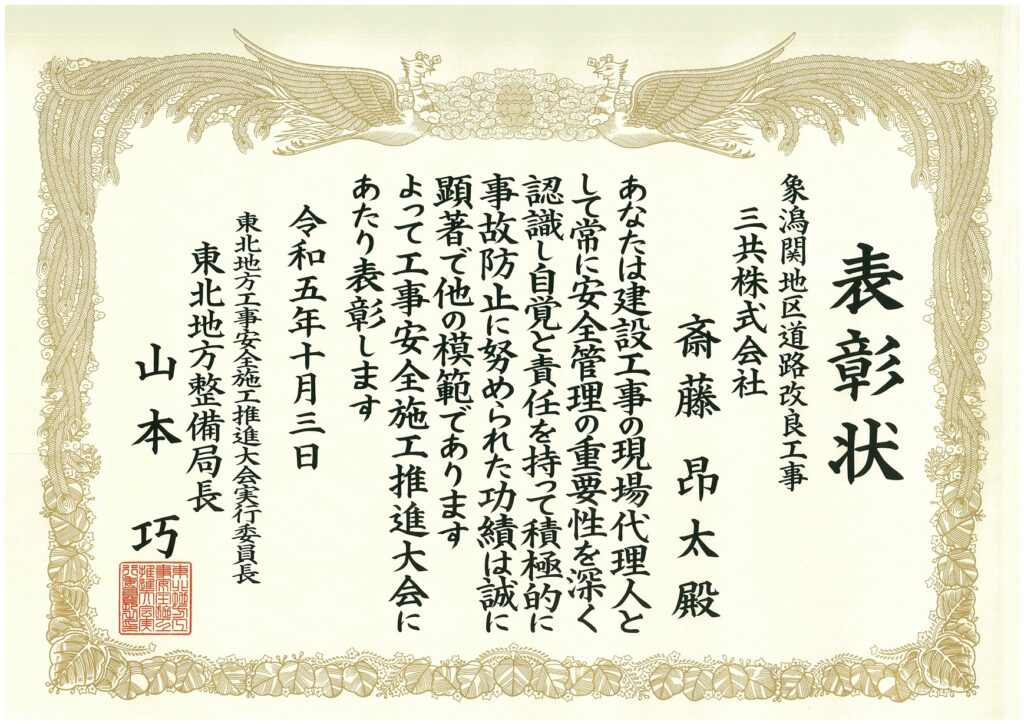 表彰状
象潟関地区道路改良工事
三共株式会社
斎藤 昂太殿
あなたは建設工事の現場代理人と
して常に安全管理の重要性を深く
認識し自覚と責任を持って積極的に
事故防止に努められた功績は誠に
顕著で他の模範であります
よって工事安全施工推進大会に
あたり表彰します
令和五年十月三日
東北地方工事安全施工推進大会実行委員長
東北地方整備局長
山本 巧